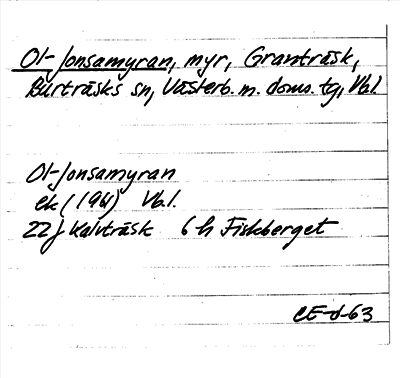 Ol-Jonsamyran, myr, Granträsk,
Burträsks sn, Västerb. m. doms. tg, Vbl
Ol-Jonsamyran
ek (1961) Vb.l.
22 j Kalvträsk 6 h Fiskberget
CE-d-63